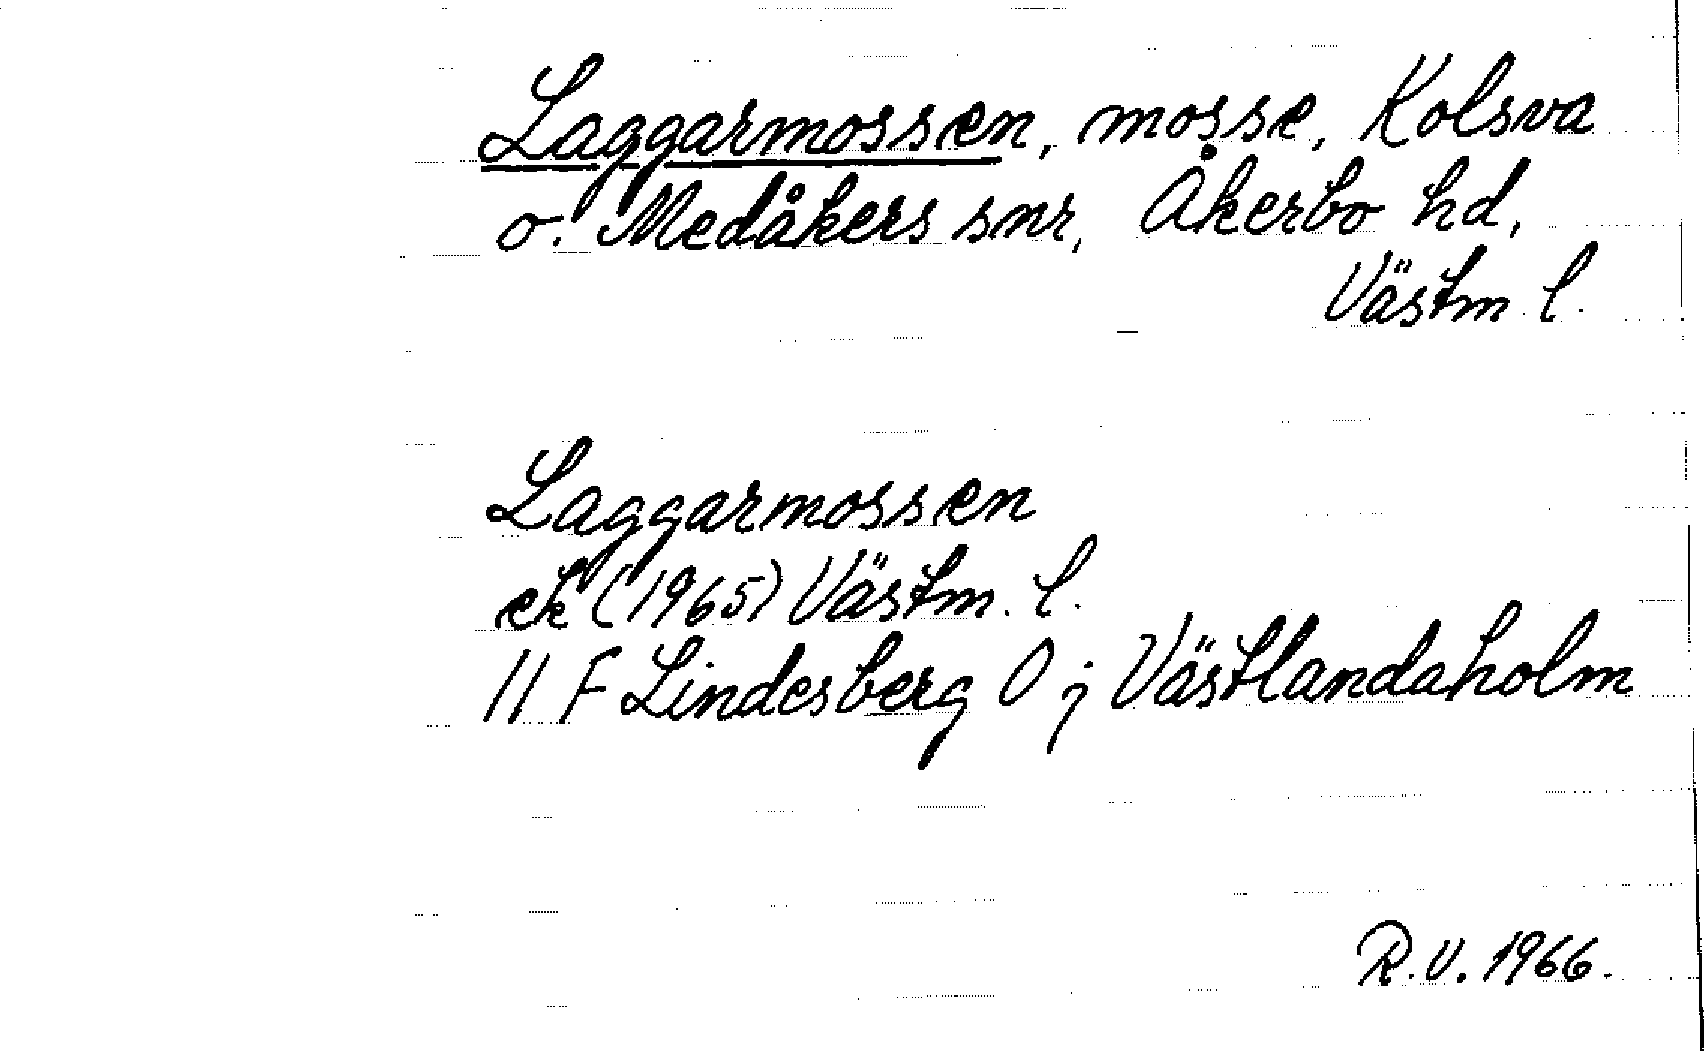 Laggarmossen, mosse, Kolsva
o. Medåkers snr, Åkerbo hd,
Västm. l.
Laggarmossen
ek (1965) Västm. l.
11 F Lindesberg 0 j Västlandaholm
R.V. 1966.